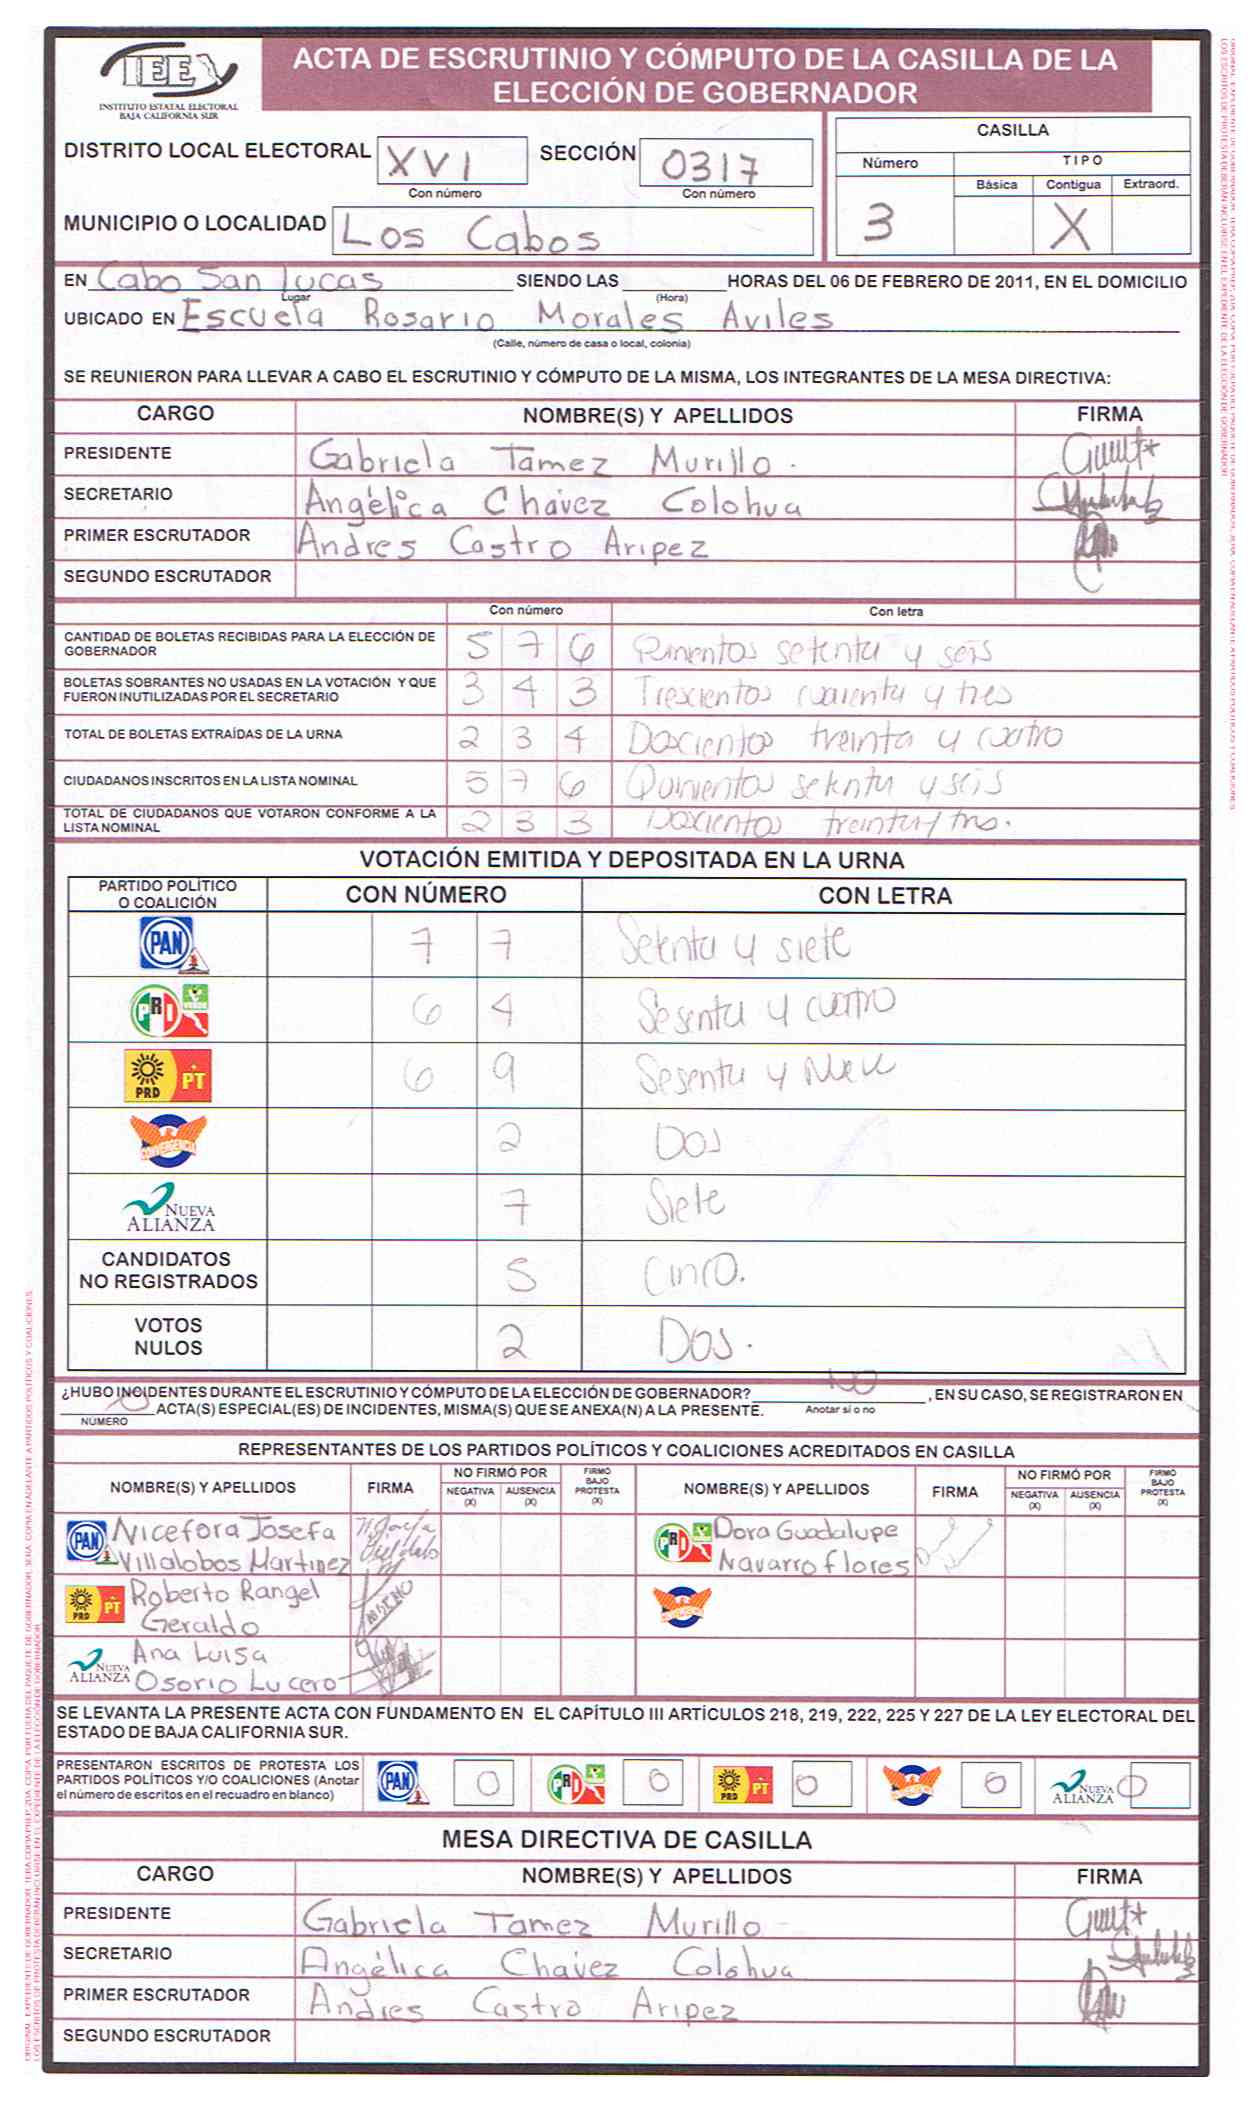 IEE
INSTITUTO ESTATAL ELECTORAL
BAJA CALIFORNIA SUR
ACTA DE ESCRUTINIO Y CÓMPUTO DE LA CASILLA DE LA
ELECCIÓN DE GOBERNADOR
DISTRITO LOCAL ELECTORAL XVI SECCIÓN 0317
Con número Con número
MUNICIPIO O LOCALIDAD Los Cabos
CASILLA
Número TIPO
Básica Contigua Extraord.
3 X
EN Cabo San Lucas SIENDO LAS HORAS DEL 06 DE FEBRERO DE 2011, EN EL DOMICILIO
Lugar (Hora)
UBICADO EN Escuela Rosario Morales Aviles
(Calle, número de casa o local, colonia)
SE REUNIERON PARA LLEVAR A CABO EL ESCRUTINIO Y CÓMPUTO DE LA MISMA, LOS INTEGRANTES DE LA MESA DIRECTIVA:
CARGO NOMBRE(S) Y APELLIDOS FIRMA
PRESIDENTE Gabriela Tamez Murillo.
SECRETARIO Angélica Chávez Colohua
PRIMER ESCRUTADOR Andres Castro Aripez
SEGUNDO ESCRUTADOR
Con número Con letra
CANTIDAD DE BOLETAS RECIBIDAS PARA LA ELECCIÓN DE
GOBERNADOR 5 7 6 setenta y seis
BOLETAS SOBRANTES NO USADAS EN LA VOTACIÓN Y QUE
FUERON INUTILIZADAS POR EL SECRETARIO 3 4 3 Trescientos cuarenta y tres
TOTAL DE BOLETAS EXTRAÍDAS DE LA URNA 2 3 4 Doscientos treinta y cuatro
CIUDADANOS INSCRITOS EN LA LISTA NOMINAL 5 7 6 Quinientos setenta y seis
TOTAL DE CIUDADANOS QUE VOTARON CONFORME A LA
LISTA NOMINAL 2 3 3 Doscientos treinta y tres.
VOTACIÓN EMITIDA Y DEPOSITADA EN LA URNA
PARTIDO POLÍTICO
O COALICIÓN CON NÚMERO CON LETRA
PAN 7 7 Setenta y siete
PRI VERDE 6 4 Sesenta y cuatro
PRD PT 6 9 Sesenta y Nueve
CONVERGENCIA 2 Dos
NUEVA ALIANZA 7 Siete
CANDIDATOS
NO REGISTRADOS 5 Cinco.
VOTOS
NULOS 2 Dos.
¿HUBO INCIDENTES DURANTE EL ESCRUTINIO Y CÓMPUTO DE LA ELECCIÓN DE GOBERNADOR? NO , EN SU CASO, SE REGISTRARON EN
0 ACTA(S) ESPECIAL(ES) DE INCIDENTES, MISMA(S) QUE SE ANEXA(N) A LA PRESENTE. Anotar si o no
NÚMERO
REPRESENTANTES DE LOS PARTIDOS POLÍTICOS Y COALICIONES ACREDITADOS EN CASILLA
NOMBRE(S) Y APELLIDOS FIRMA NO FIRMÓ POR NEGATIVA (X) AUSENCIA (X) FIRMÓ BAJO PROTESTA (X) NOMBRE(S) Y APELLIDOS FIRMA NO FIRMÓ POR NEGATIVA (X) AUSENCIA (X) FIRMÓ BAJO PROTESTA (X)
PAN Nicefora Josefa Villalobos Martinez PRI Dora Guadalupe Navarro flores
PRD PT Roberto Rangel Geraldo
NUEVA ALIANZA Ana Luisa Osorio Lucero
SE LEVANTA LA PRESENTE ACTA CON FUNDAMENTO EN EL CAPÍTULO III ARTÍCULOS 218, 219, 222, 225 Y 227 DE LA LEY ELECTORAL DEL
ESTADO DE BAJA CALIFORNIA SUR.
PRESENTARON ESCRITOS DE PROTESTA LOS
PARTIDOS POLÍTICOS Y/O COALICIONES (Anotar
el número de escritos en el recuadro en blanco)
PAN 0 PRI 0 PRD PT 0 0 NUEVA ALIANZA 0
MESA DIRECTIVA DE CASILLA
CARGO NOMBRE(S) Y APELLIDOS FIRMA
PRESIDENTE Gabriela Tamez Murillo
SECRETARIO Angélica Chávez Colohua
PRIMER ESCRUTADOR Andres Castro Aripez
SEGUNDO ESCRUTADOR